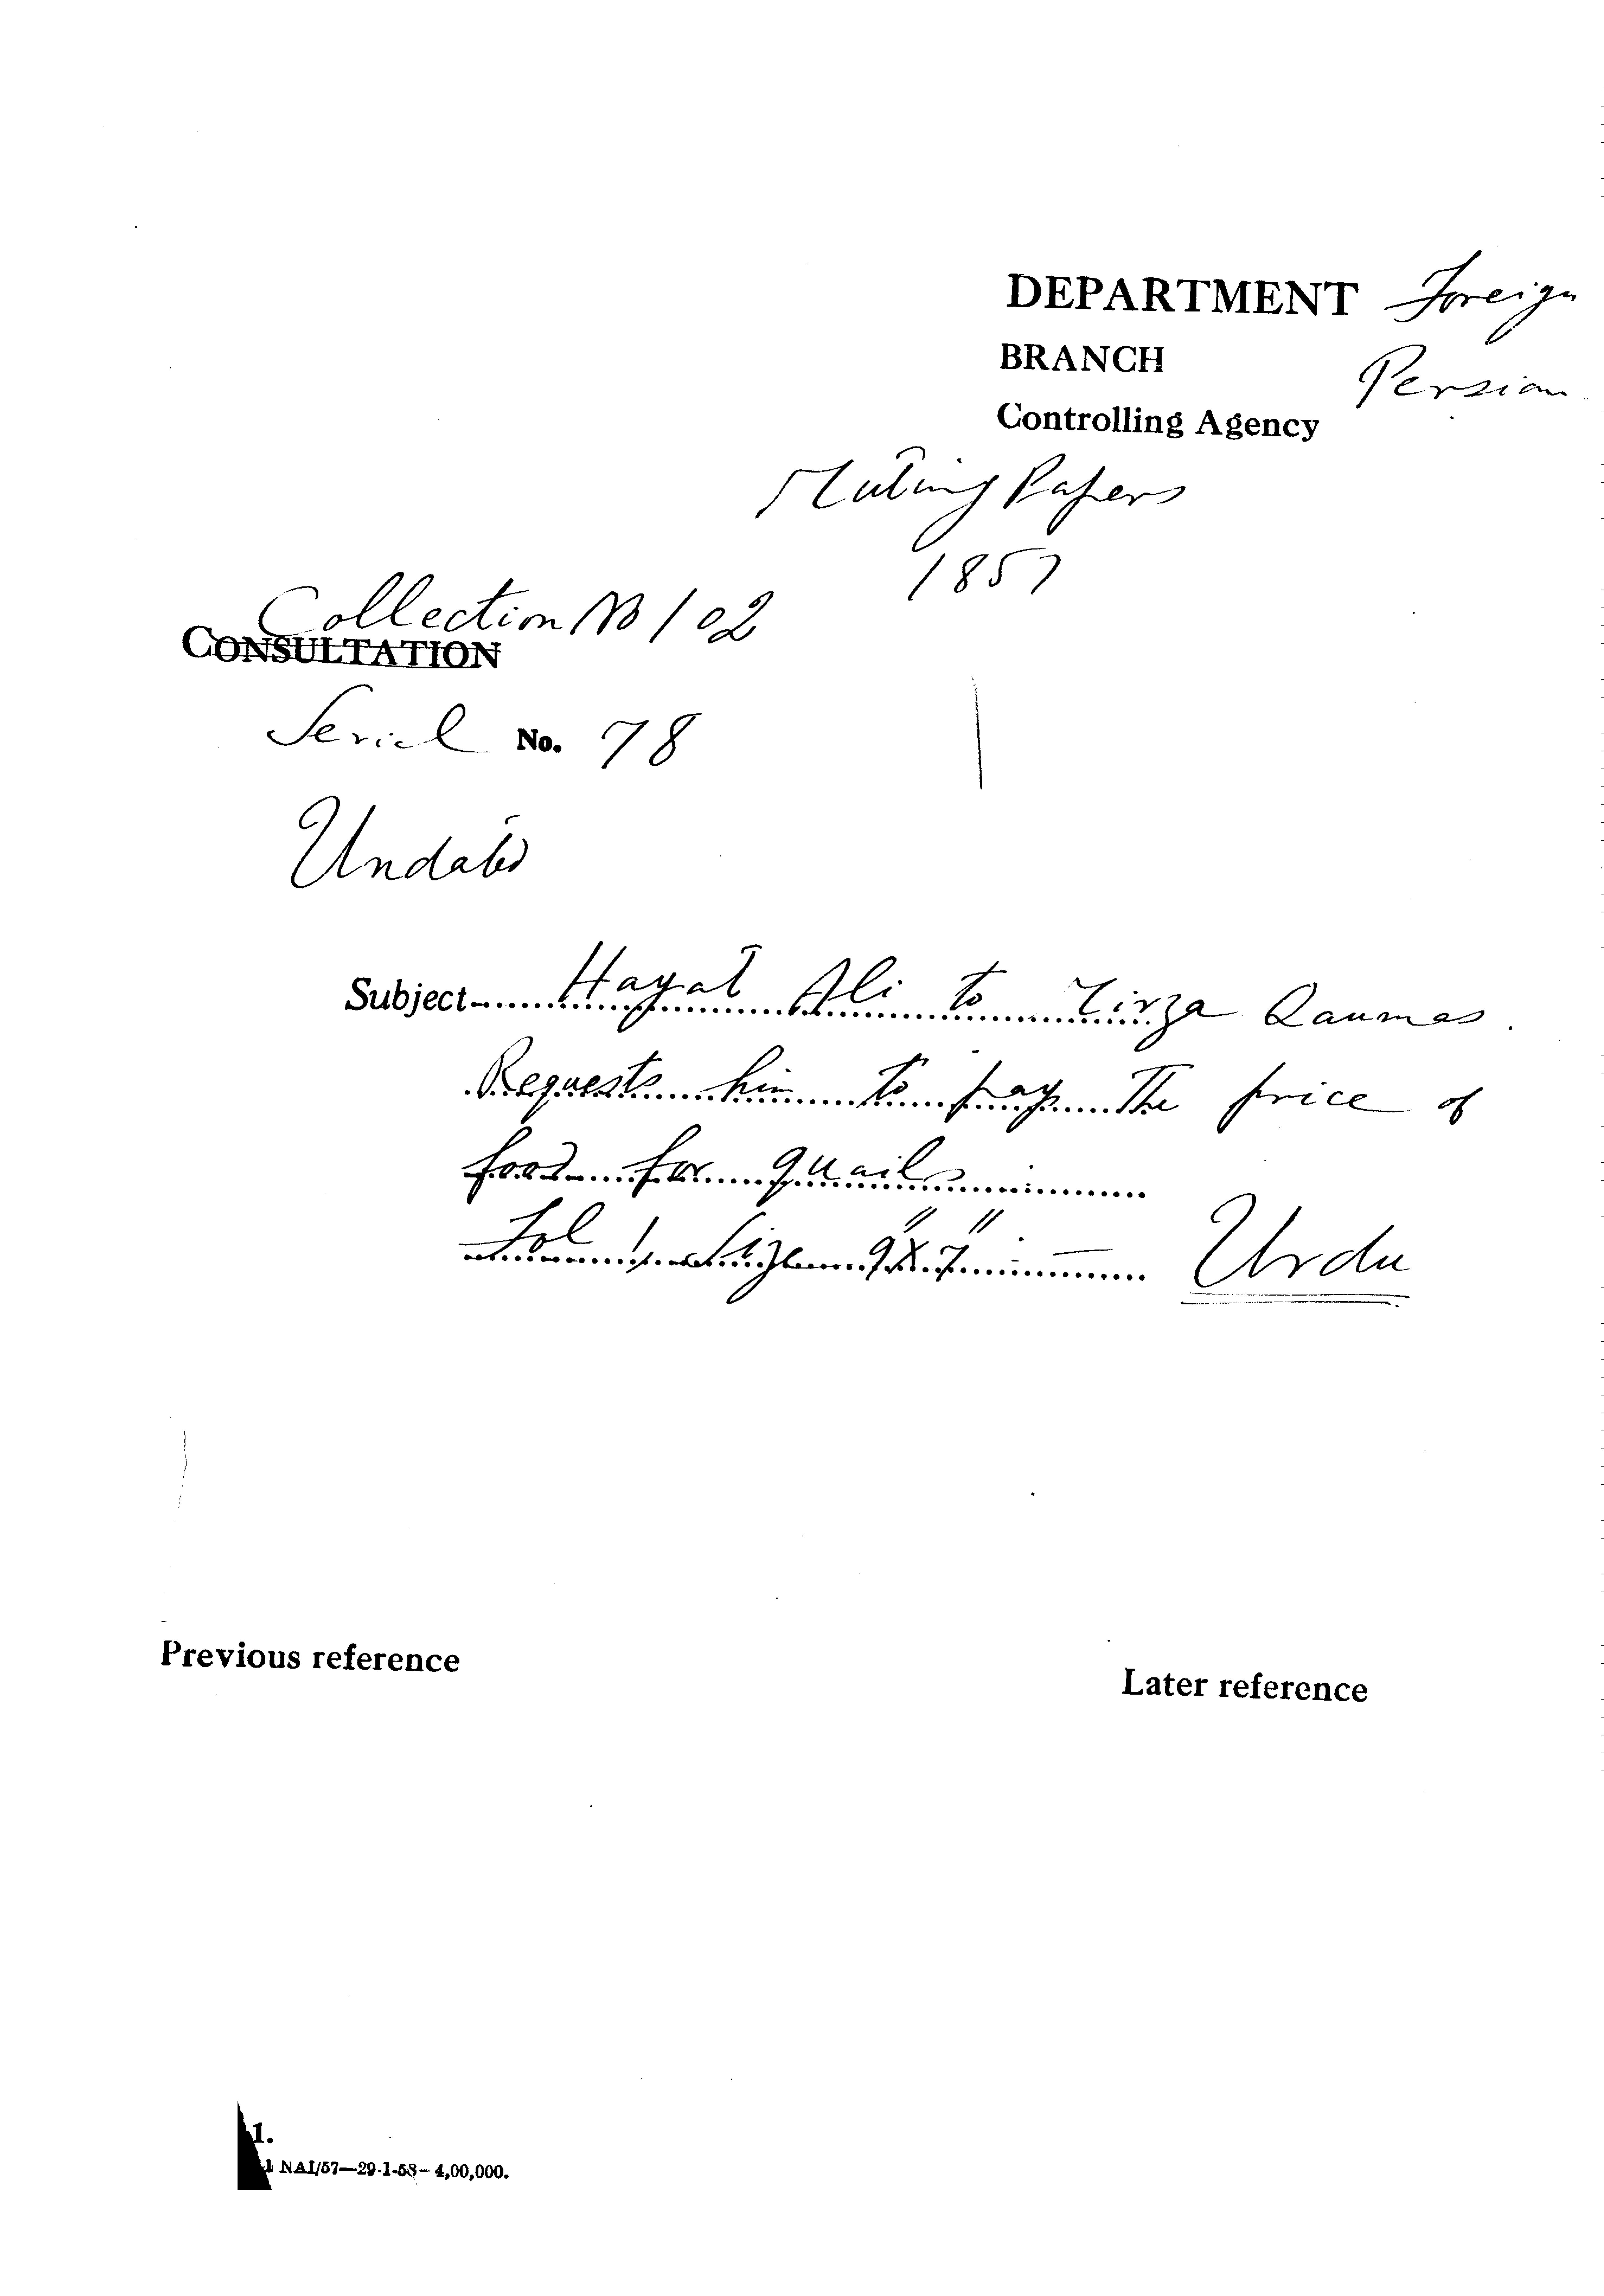 DEPARTMENT Foreign
BRANCH Persian
Controlling Agency
Mutiny Papers
1857
Collection No 102
CONSULTATION
Serial No. 78
Undated
Subject Hayat Ali to Mirza Qaumas.
Requests him to pay the price of
food for quails
Fol 1. Size 9"x7" — Urdu
Previous reference
Later reference
1.
1 NAI/57—29-1-58—4,00,000.